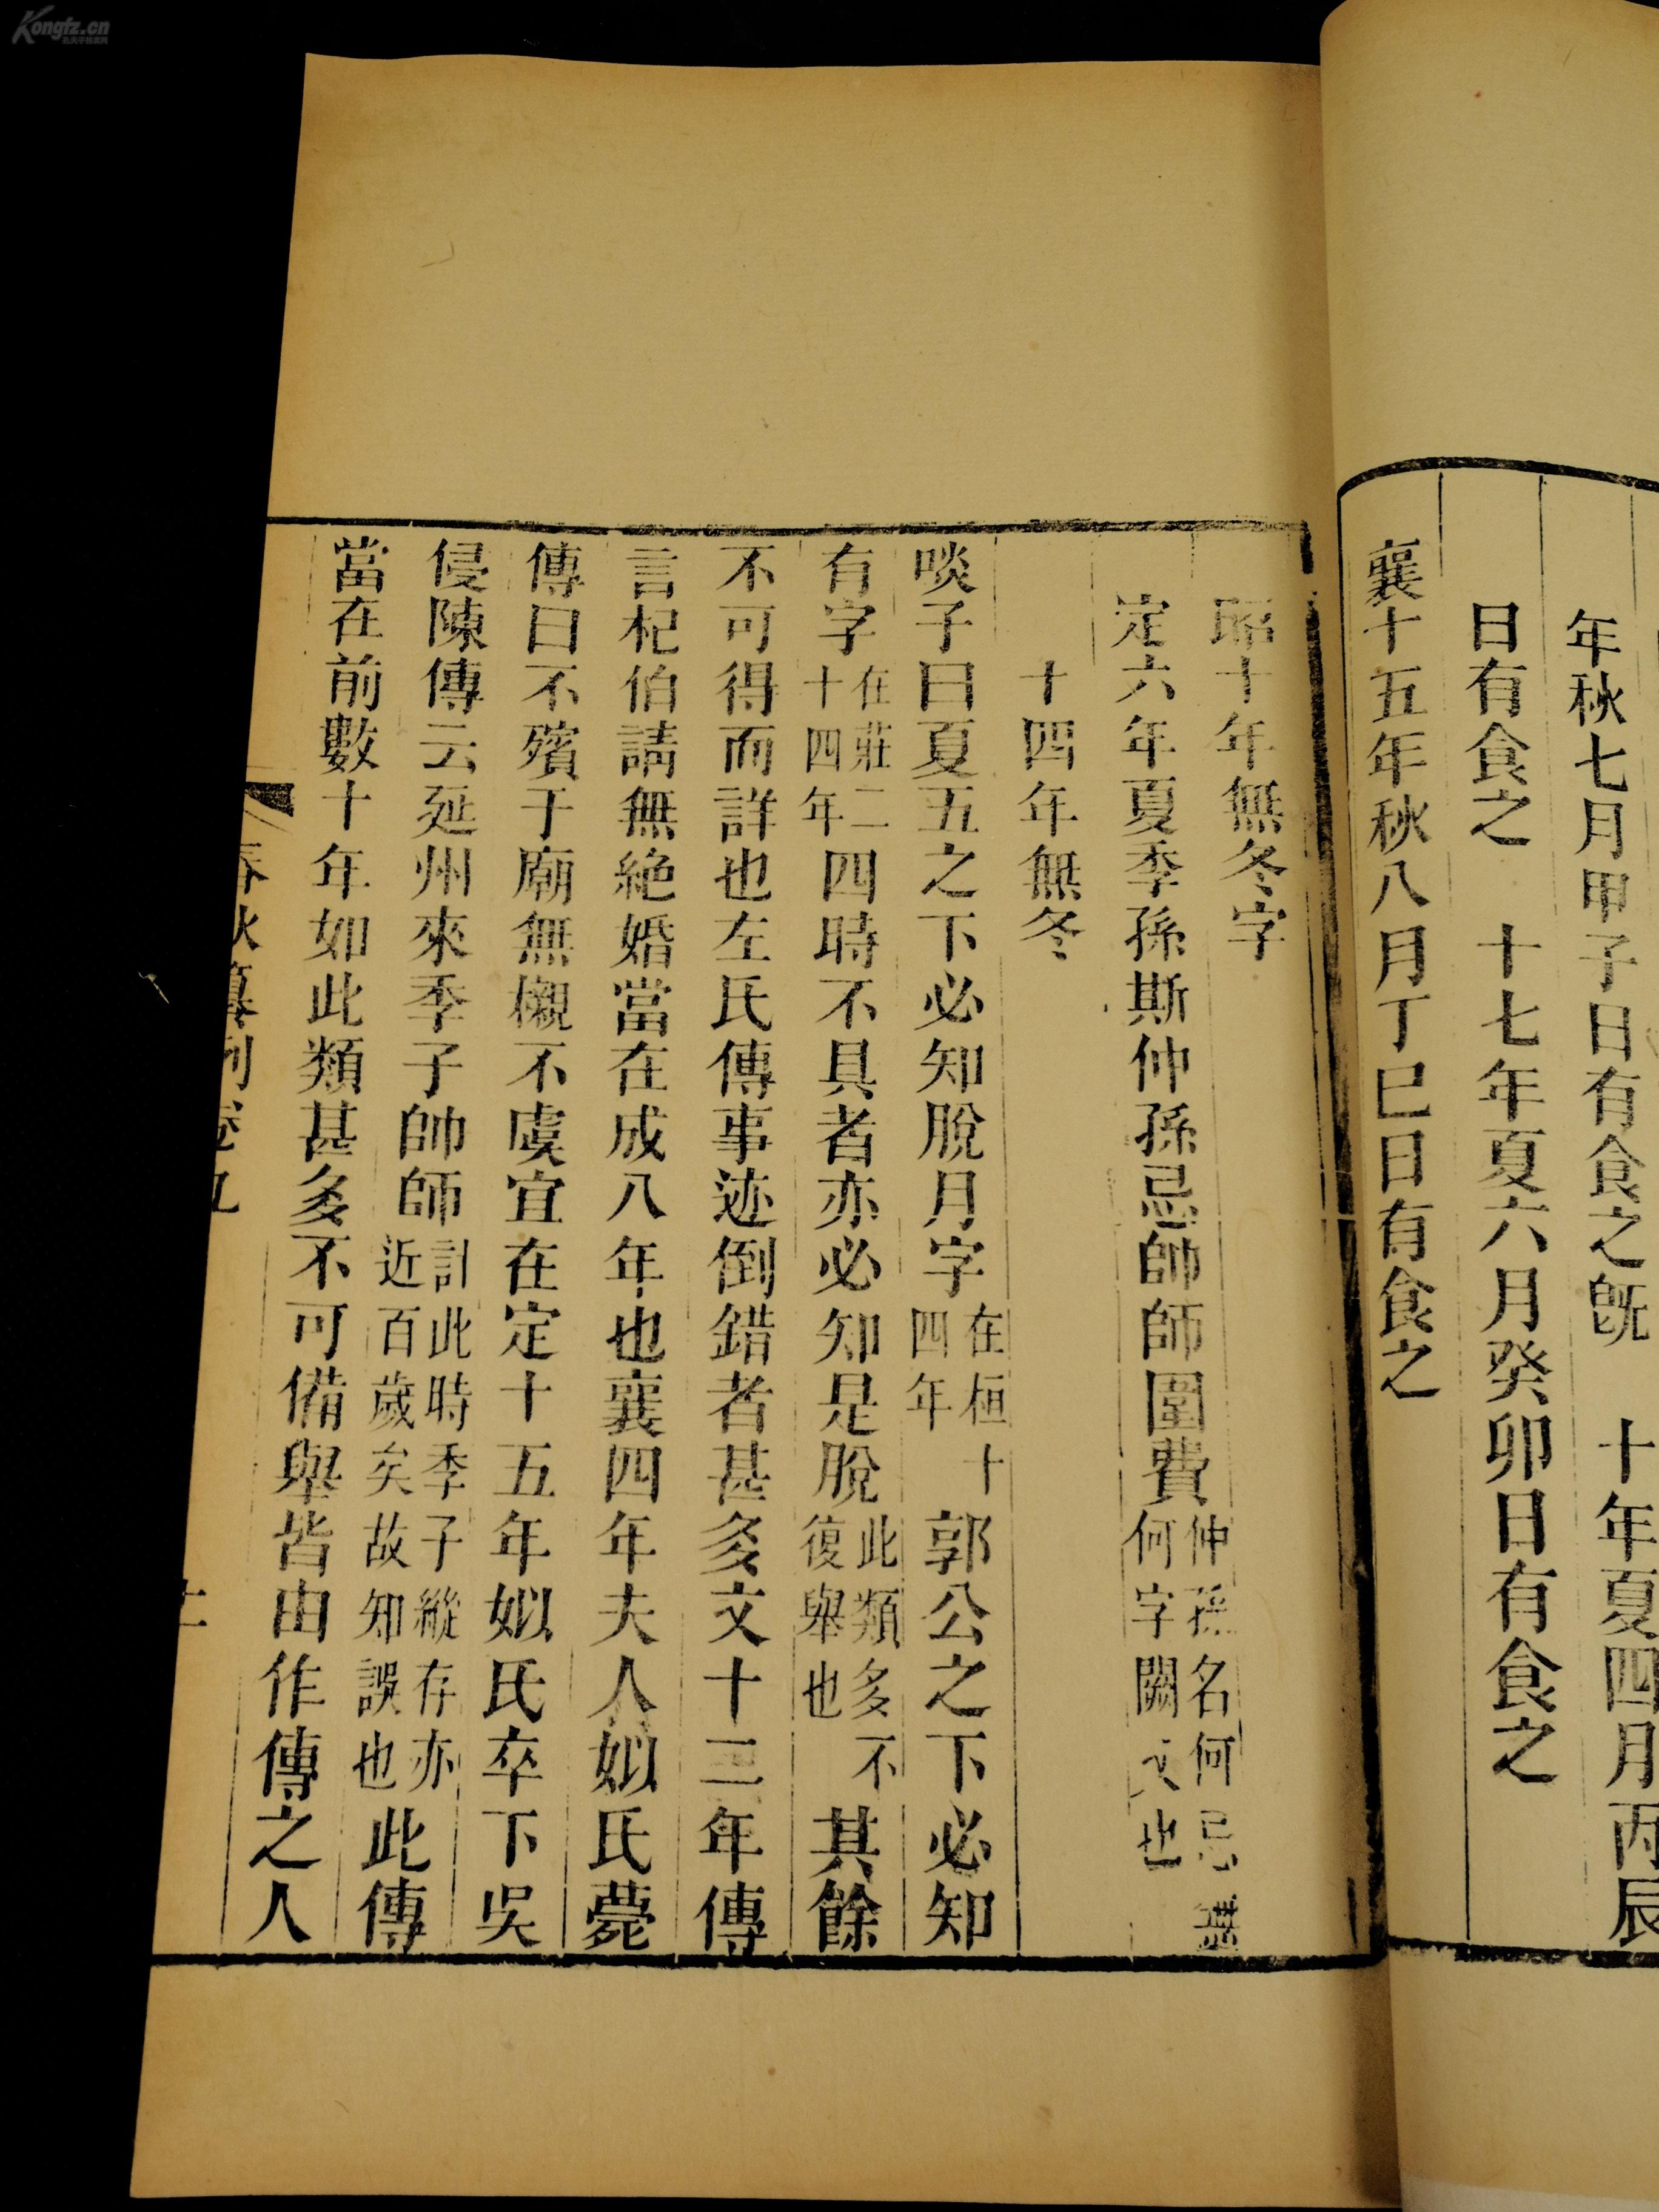 年秋七月甲子日有食之旣　十年夏四月丙辰
日有食之　十七年夏六月癸卯日有食之
襄十五年秋八月丁巳日有食之
昭十年無冬字
定六年夏季孫斯仲孫忌帥師圍費仲孫名何忌無何字闕文也
十四年無冬
啖子曰夏五之下必知脫月字在桓十四年郭公之下必知
有字在莊二十四年四時不具者亦必知是脫此類多不復舉也其餘
不可得而詳也左氏傳事迹倒錯者甚多文十二年傳
言杞伯請無絶婚當在成八年也襄四年夫人姒氏薨
傳曰不殯于廟無櫬不虞宜在定十五年姒氏卒下吳
侵陳傳云延州來季子帥師計此時季子縱存亦近百歲矣故知誤也此傳
當在前數十年如此類甚多不可備舉皆由作傳之人
春秋纂例卷九
Kongfz.cn